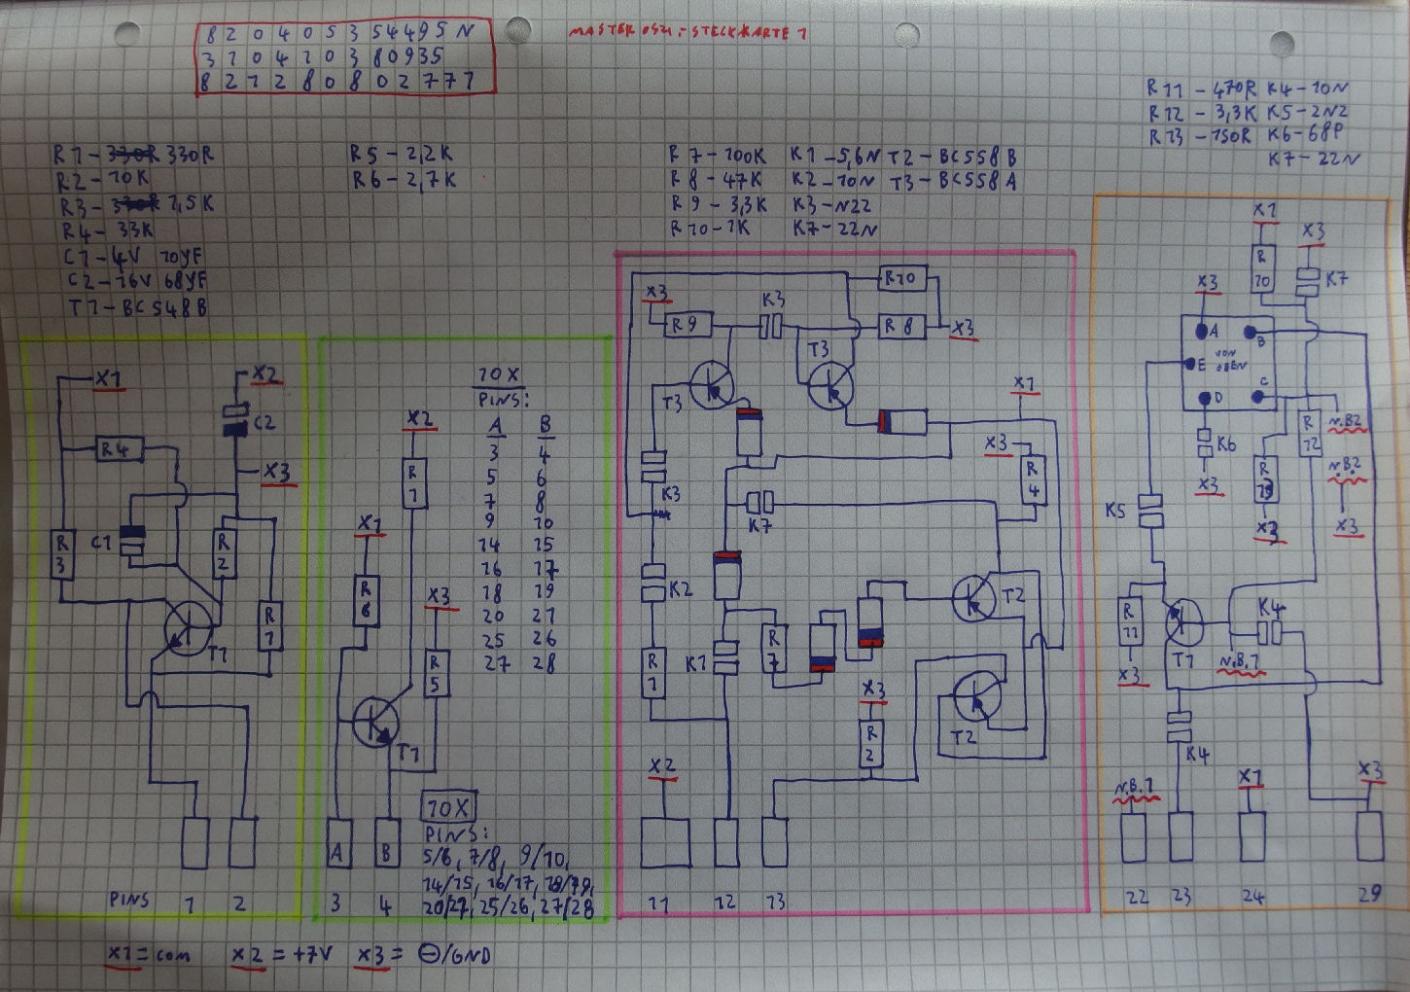 8 2 0 4 0 5 3 5 4 4 9 5 N
3 1 0 4 2 0 3 8 0 9 3 5
8 2 1 2 8 0 8 0 2 7 7 1
MASTER OSZI. : STECKKARTE 1
R11 - 470R K4 - 10N
R12 - 3,3K K5 - 2N2
R13 - 150R K6 - 68P
K7 - 22N
R1 - 330R 330R
R2 - 10K
R3 - 330R 1,5K
R4 - 33K
C1 - 4V 10µF
C2 - 16V 68µF
T1 - BC548B
R5 - 2,2K
R6 - 2,7K
R7 - 100K K1 - 5,6N T2 - BC558B
R8 - 47K K2 - 10N T3 - BC558A
R9 - 3,3K K3 - N22
R10 - 1K K7 - 22N
X1
X2
C2
R4
X3
C1
R3
R2
R1
T1
PINS 1 2
10X
PINS:
A B
3 4
5 6
7 8
9 10
14 15
16 17
18 19
20 21
25 26
27 28
X2
R1
X1
R6
X3
R5
T1
10X
PINS:
5/6, 7/8, 9/10,
14/15, 16/17, 18/19,
20/21, 25/26, 27/28
A B
3 4
X3
R9
K3
R10
R8
X3
T3
T3
X1
X3
R4
K3
K7
K2
T2
R1
K1
R7
X3
T2
R2
X2
11 12 13
X1
R10
X3
K7
X3
A
B
VON
OBEN
E
C
D
K6
X3
R13
X3
R12
N.B2
N.B.2
X3
K5
R11
X3
T1
K4
N.B.1
K4
N.B.1
X1
X3
22 23 24 29
X1 = COM X2 = +7V X3 = ⊖/GND